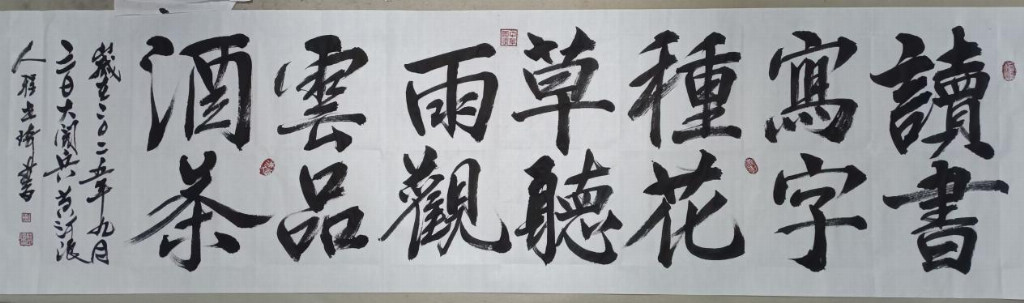 讀書
寫字
種花
草聽
雨觀
雲品
酒茶
歲在二〇二五年九月
二日大閱兵前
人程書